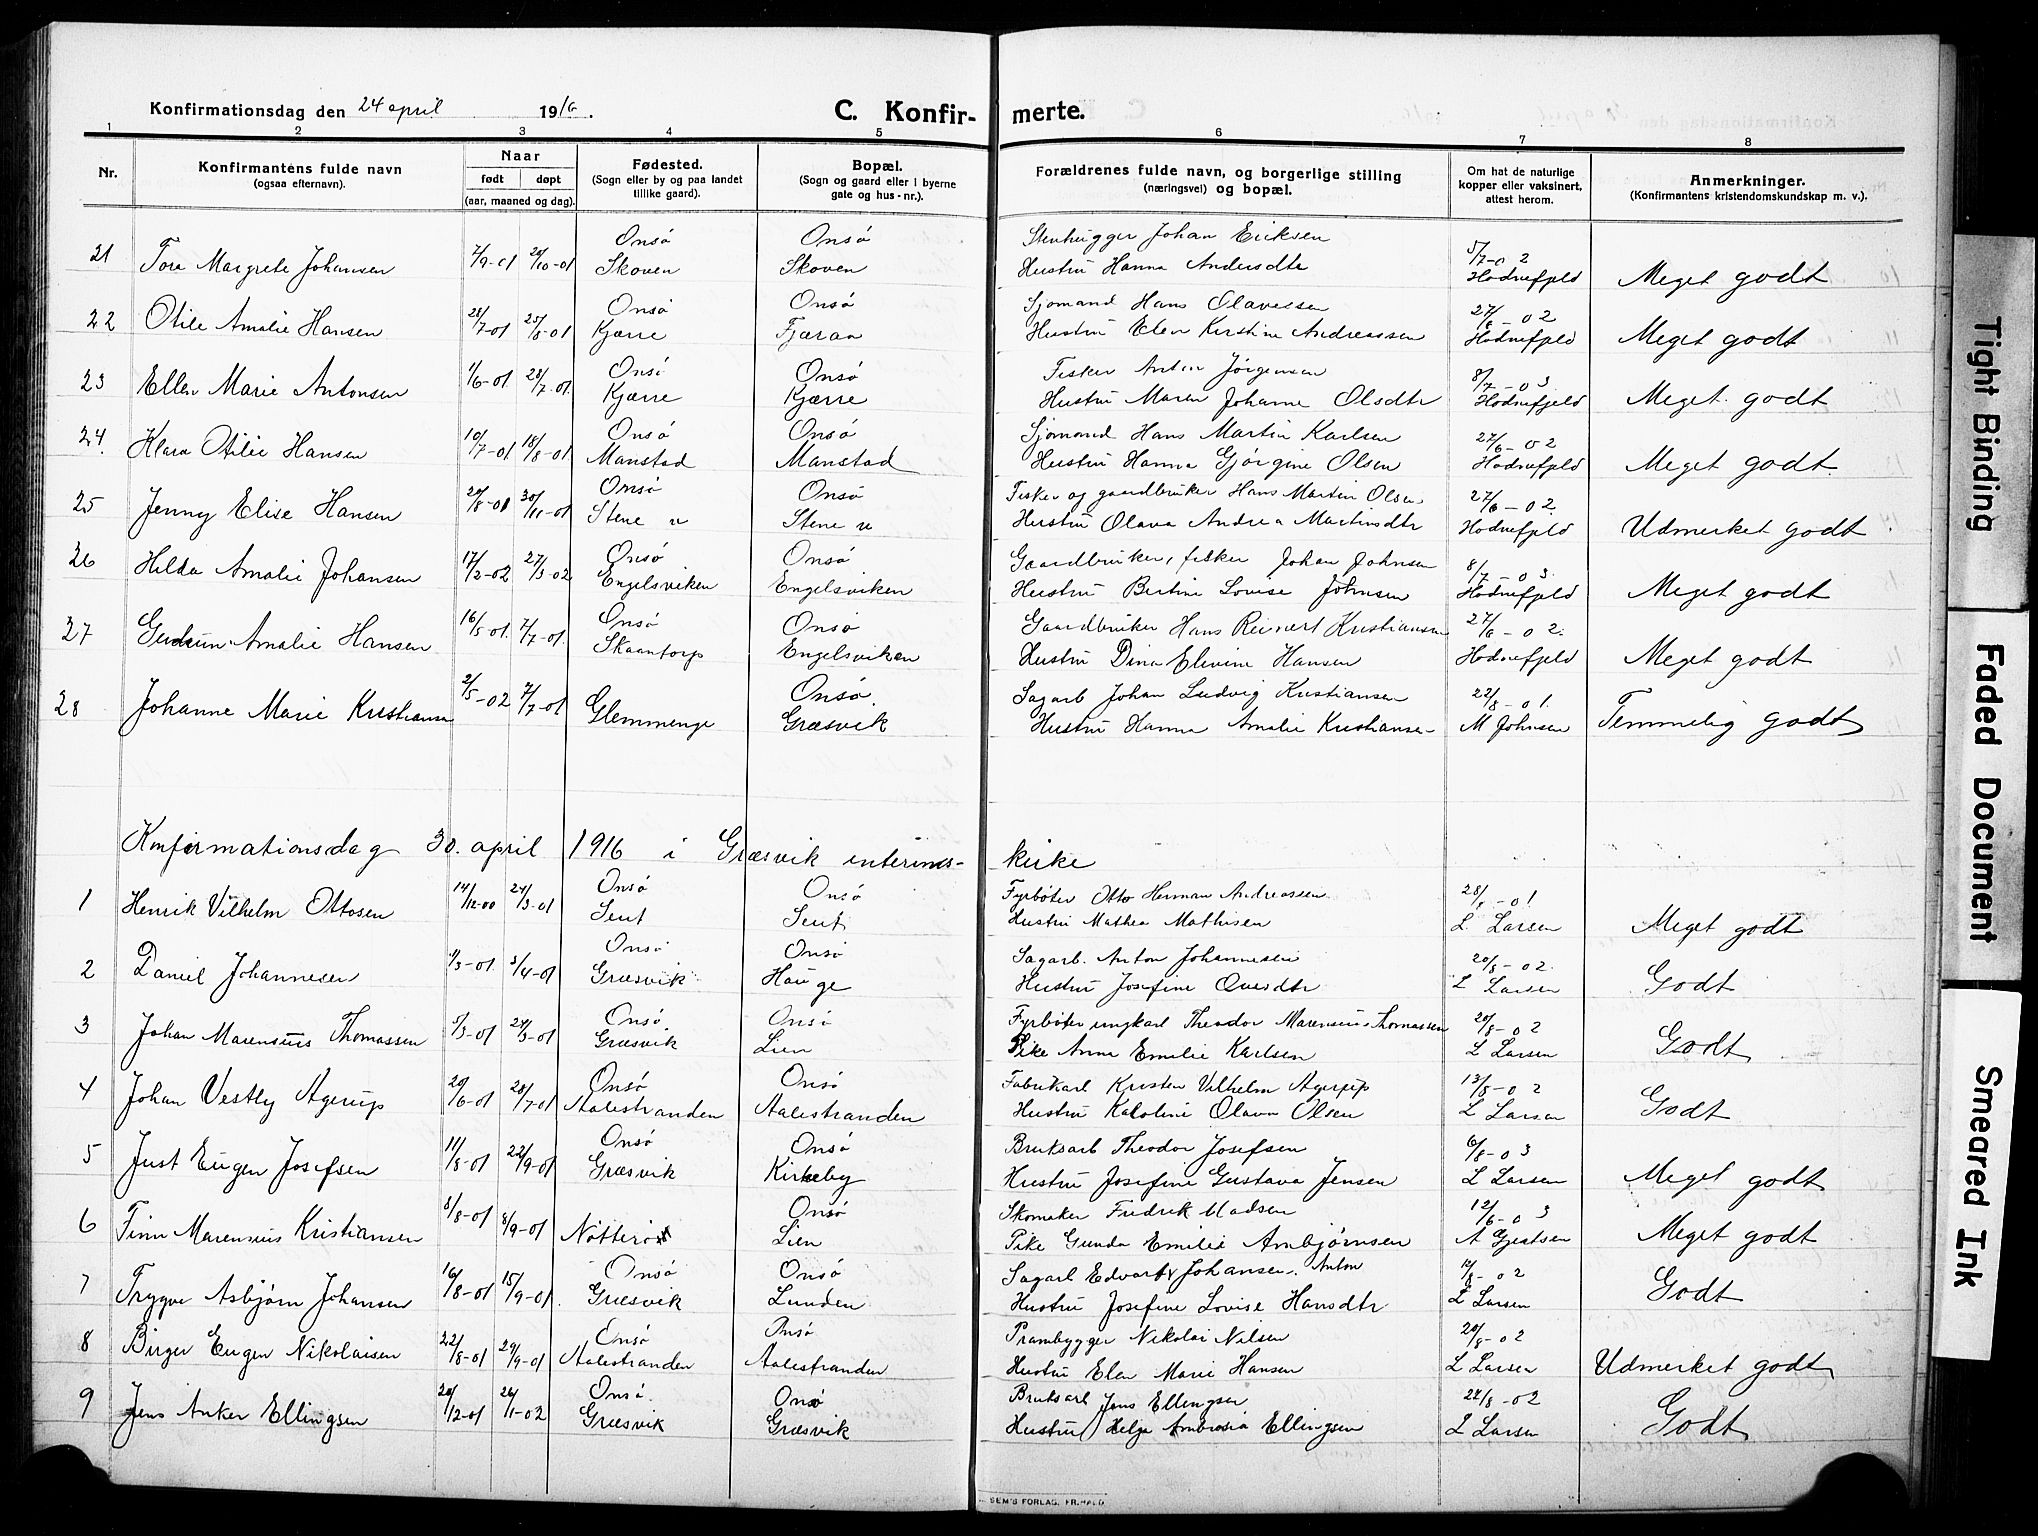 Konfirmationsdag den 24 april 1916. C. Konfirmerte.
1 2 3 4 5 6 7 8
Nr. Konfirmantens fulde navn (ogsaa efternavn). Naar født døpt (aar, maaned og dag). Fødested. (Sogn eller by og paa landet tillike gaard). Bopæl. (Sogn og gaard eller i byerne gate og hus-nr.). Forældrenes fulde navn, og borgerlige stilling (næringsvei) og bopæl. Om hat de naturlige kopper eller vaksinert, attest herom. Anmerkninger. (Konfirmantens kristendomskundskap m. v.).
Onsø Onsø Stenhugger Johan Eriksen 5/7-02
21 Tora Margrete Johansen 7/9-01 20/10-01 Skoven Skoven Hustru Hanna Andersdtr Hodnefjeld Meget godt
Onsø Onsø Sjømand Hans Olavessen 27/6-02
22 Otile Amalie Hansen 28/7-01 25/8-01 Kjærre Fjæraa Hustru Elen Kirstine Andreassen Hodnefjeld Meget godt
Onsø Onsø Fisker Anton Jørgensen 8/7-03
23 Ellen Marie Antonsen 1/6-01 28/7-01 Kjærre Kjærre Hustru Maren Johanne Olsdtr Hodnefjeld Meget godt
Onsø Onsø Sjømand Hans Martin Karlsen 27/6-02
24. Klara Otilie Hansen 10/7-01 18/8-01 Manstad Manstad Hustru Hanna Gjørgine Olsen Hodnefjeld Meget godt
Onsø Onsø Fisker og gaardbruker Hans Martin Olsen 27/6-02
25 Jenny Elise Hansen 20/8-01 30/11-01 Stene n Stene n Hustru Olava Andrea Martinsdtr Hodnefjeld Udmerket godt
Onsø Onsø Gaardbruker, fisker Johan Johnsen 8/7-03
26 Hilda Amalie Johansen 17/2-02 27/3-02 Engelsviken Engelsviken Hustru Bertine Lovise Johnsen Hodnefjeld Meget godt
Onsø Onsø Gaardbruker Hans Reinert Kristiansen 27/6-02
27 Gudrun Amalie Hansen 16/5-01 7/7-01 Skaantorp Engelsviken Hustru Dina Elivine Hansen Hodnefjeld Meget godt
Onsø Sagarb Johan Ludvig Kristiansen 22/8-01
28 Johanne Marie Kristiansen 2/5-02 7/7-01 Glemmenge Græsvik Hustru Hanna Amalie Kristiansen M Johnsen Temmelig godt
Konfirmationsdag 30. april 1916 i Græsvik interimskirke
Onsø Onsø Fyrbøter Otto Herman Andreassen 28/8-01
1 Henrik Vilhelm Ottosen 14/12-00 24/3-01 Seut Seut Hustru Mathea Mathisen L. Larsen Meget godt
Onsø Onsø Sagarb. Anton Johannesen 20/8-02
2 Daniel Johannesen 1/3-01 3/4-01 Græsvik Hauge Hustru Josefine Ovesdtr L Larsen Godt
Onsø Onsø Fyrbøter ungkarl Theodor Marensius Thomassen 20/8-02
3 Johan Marensius Thomassen 5/3-01 24/3-01 Græsvik Lien Pike Anne Emilie Karlsen L Larsen Godt
Onsø Onsø Fabrikarb Kristen Vilhelm Agerup 13/8-02
4 Johan Vestly Agerup 20/6-01 28/7-01 Aalestranden Aalestranden Hustru Karoline Olava Olsen L Larsen Godt
Onsø Onsø Bruksarb Theodor Josefsen 6/8-03
5 Just Eugen Josefsen 11/8-01 22/9-01 Græsvik Kirkeby Hustru Josefine Gustava Jensen L Larsen Meget godt
Onsø Skomaker Fredrik Madsen 12/6-03
6 Finn Marensius Kristiansen 8/8-01 8/9-01 Nøtterø Lien Pike Gunda Emilie Arnbjørnsen A Gjertsen Meget godt
Onsø Onsø Sagarb Edvart Johansen. Anton 13/8-02
7 Trygve Asbjørn Johansen 16/8-01 15/9-01 Græsvik Lunden Hustru Josefine Lovise Hansdtr L Larsen Godt
Onsø Onsø Prambygger Nikolai Nilsen 20/8-02
8 Birger Eugen Nikolaisen 22/8-01 29/9-01 Aalestranden Aalestranden Hustru Elen Marie Hansen L Larsen Udmerket godt
Onsø Onsø Bruksarb Jens Ellingsen 24/8-02
9 Jens Anker Ellingsen 20/12-01 26/1-02 Græsvik Græsvik Hustru Helga Ambrosia Ellingsen L Larsen Godt
SEM'S FORLAG, FR.HALD
Tight Binding
Faded Document
Smeared Ink